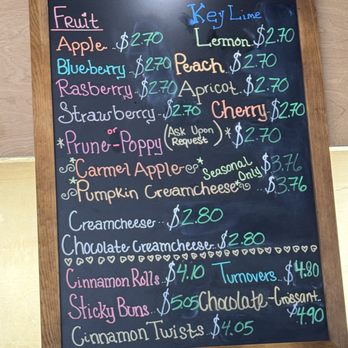 Fruit Key Lime
Apple..$2.70 Lemon.$2.70
Blueberry..$2.70 Peach..$2.70
Rasberry..$2.70 Apricot..$2.70
Strawberry..$2.70 Cherry..$2.70
*Prune or Poppy (Ask Upon Request)*$2.70
*Carmel Apple* Seasonal Only $3.76
*Pumpkin Creamcheese*...$3.76
Creamcheese...$2.80
Chocolate Creamcheese..$2.80
Cinnamon Rolls..$4.10 Turnovers..$4.80
Sticky Buns...$5.05 Chocolate-Crossant...$4.90
Cinnamon Twists...$4.05